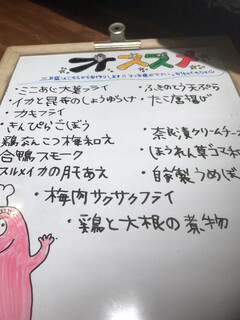 オススメ
・ミニあじ大葉フライ
・イカと昆布のしょうゆらけ
・カキフライ
・きんぴらごぼう
鶏なんこつ梅和え
合鴨スモーク
スルメイカの月モあえ
・ふきのとう天ぷら
・たこ唐揚げ
・奈良漬クリームチーズ
・ほうれん草ゴマ和え
・自家製うめぼし
・梅肉サクサクフライ
・鶏と大根の煮物